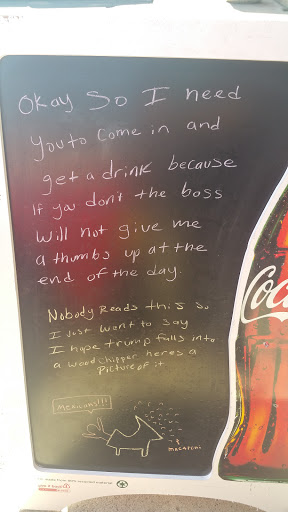 Okay So I need
you to come in and
get a drink because
If you don't the boss
will not give me
a thumbs up at the
end of the day.
Nobody Reads this so
I Just want to say
I hope trump falls into
a wood chipper heres a
Picture of it
MEXICANS!!!
macaroni
Coca